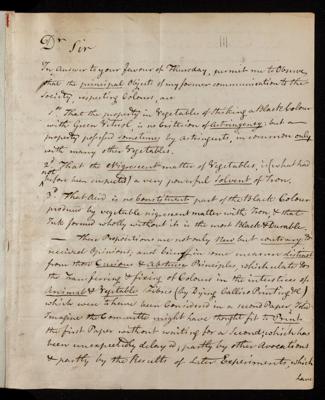 Dr Sir
In Answer to your favour of Thursday, permit me to Observe
that the principal Objects of my former communication to the
Society, respecting Colours, are
1st That the property in Vegetables of striking a Black Colour
with Green Vitriol is no Criterion of Astringency: but a
property possessed sometimes by astringents, in common only
with many other Vegetables.
2d That the Nigrescent matter of Vegetables, is (what had
not before been suspected) a very powerful Solvent of Iron.
3d That Acid is no constituent part of the Black Colour
produced by vegetable nigrescent matter with Iron; & that
Ink formed wholly without it is the most Black & Durable.
These Propositions are not only New but contrary to
received Opinions; and being in some measure distinct
from those Curious & Abstruse Principles, which relate to
the Transferring & fixing of Colours in the interstices of
Animal & Vegetable Fibres (by Dying Callico Printing &c)
which were to have been Considered in a second Paper. I had
Imagined the Committee might have thought fit to Print
the first Paper without waiting for a Second; which has
been unexpectedly delay'd, partly by other Avocations
& partly by the Results of Later Experiments, which
have